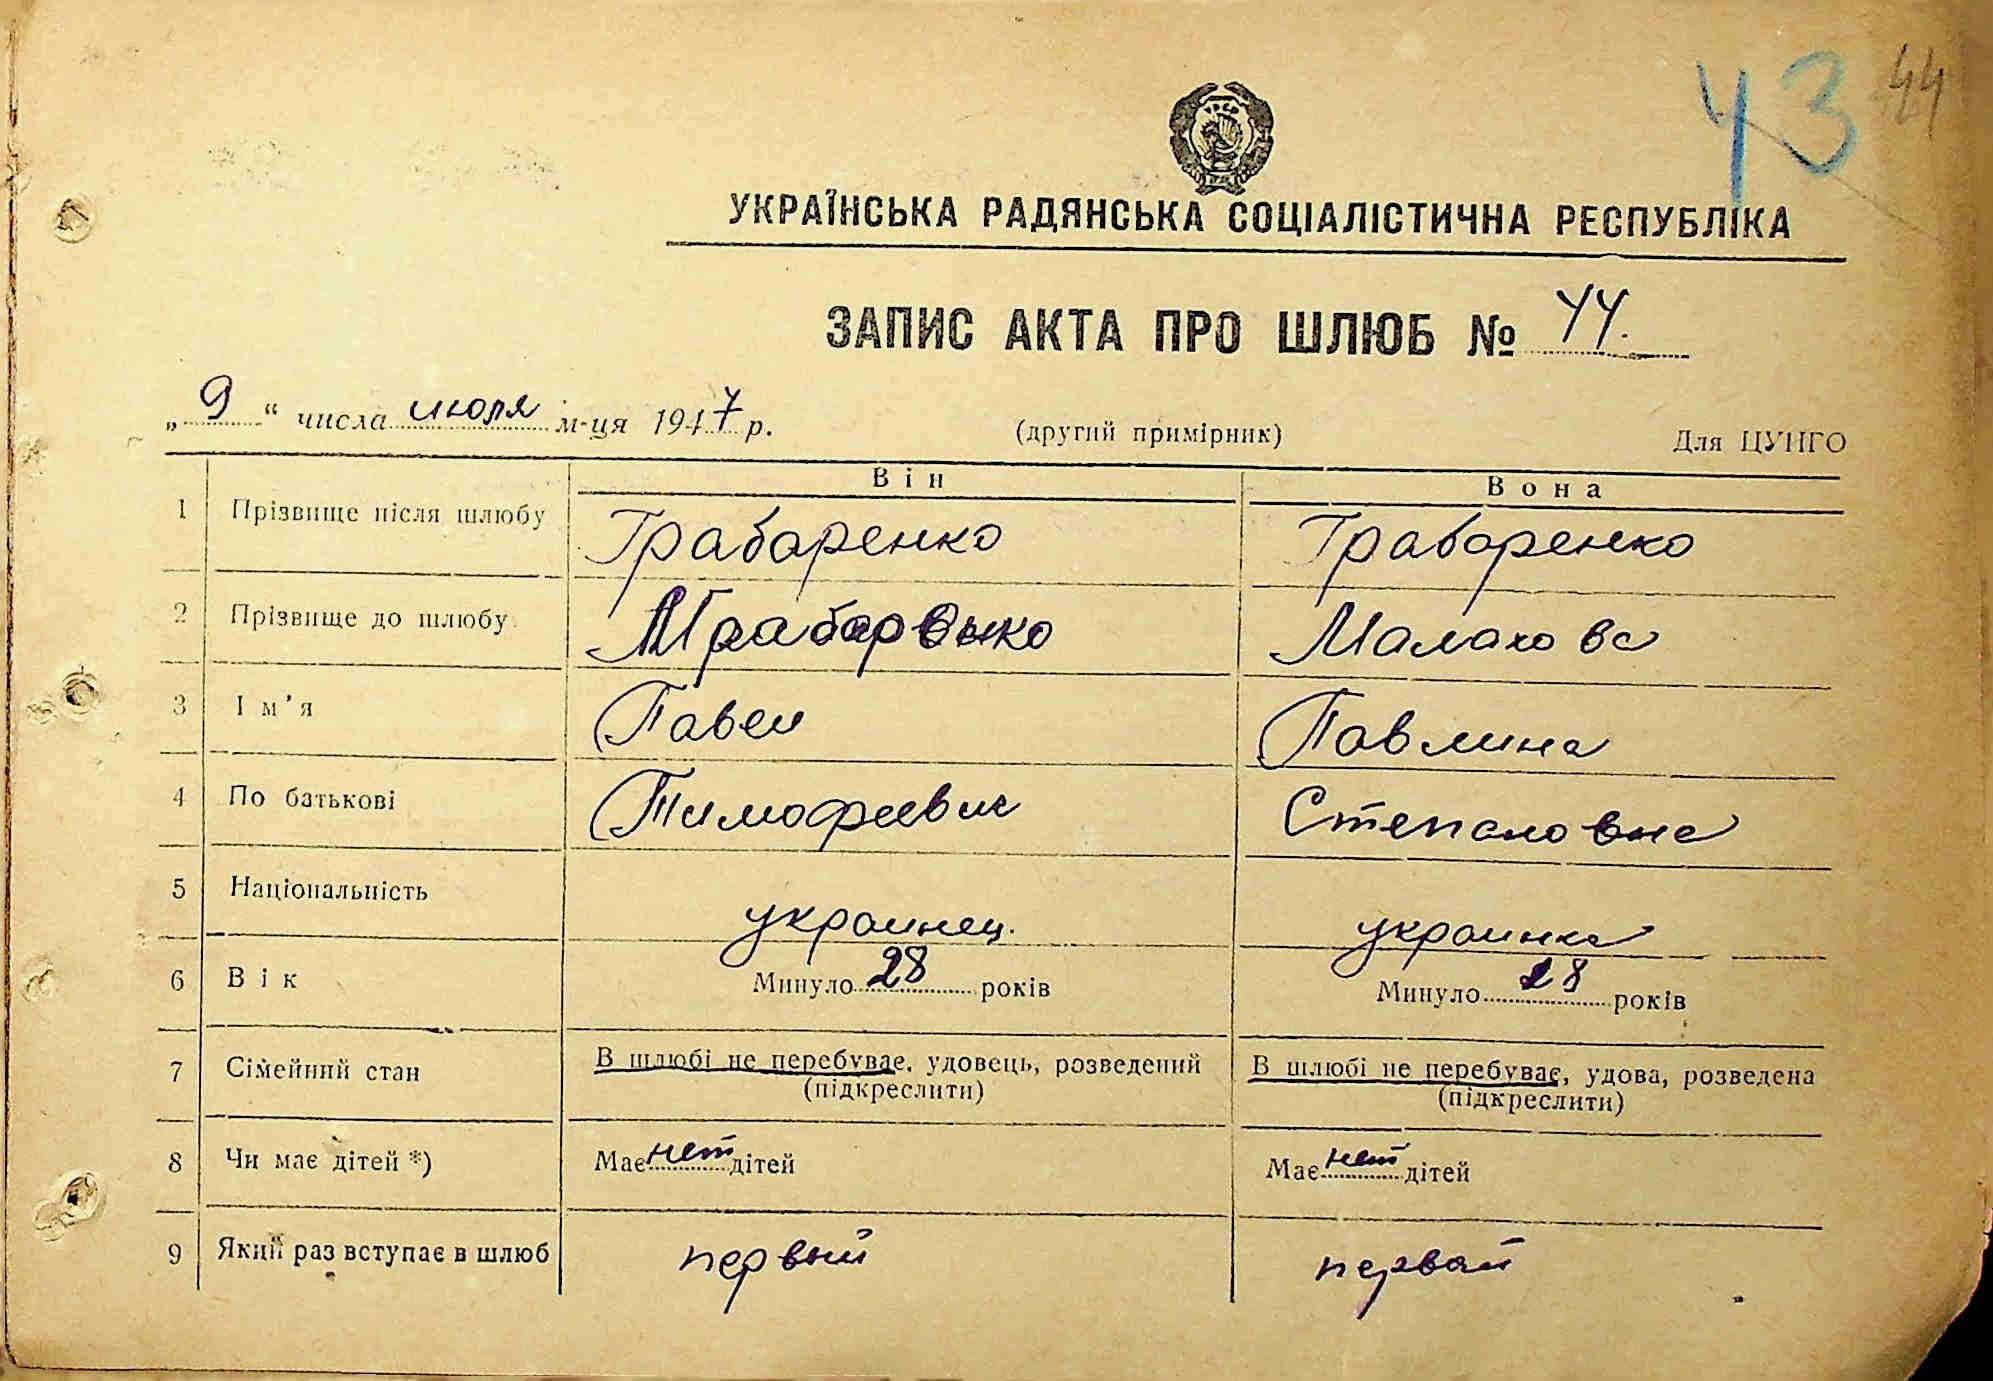 43 44
УКРАЇНСЬКА РАДЯНСЬКА СОЦІАЛІСТИЧНА РЕСПУБЛІКА
ЗАПИС АКТА ПРО ШЛЮБ № 44.
„9“ числа июля м-ця 1947 р. (другий примірник) Для ЦУНГО
Він Вона
1 Прізвище після шлюбу Грабаренко Грабаренко
2 Прізвище до шлюбу Грабаренко Малахова
3 Ім'я Павел Павлина
4 По батькові Тимофеевич Степановна
5 Національність украинец. украинка
6 Вік Минуло 28 років Минуло 28 років
7 Сімейний стан В шлюбі не перебуває, удовець, розведений В шлюбі не перебуває, удова, розведена
(підкреслити) (підкреслити)
8 Чи має дітей *) Має нет дітей Має нет дітей
9 Який раз вступає в шлюб первый первый